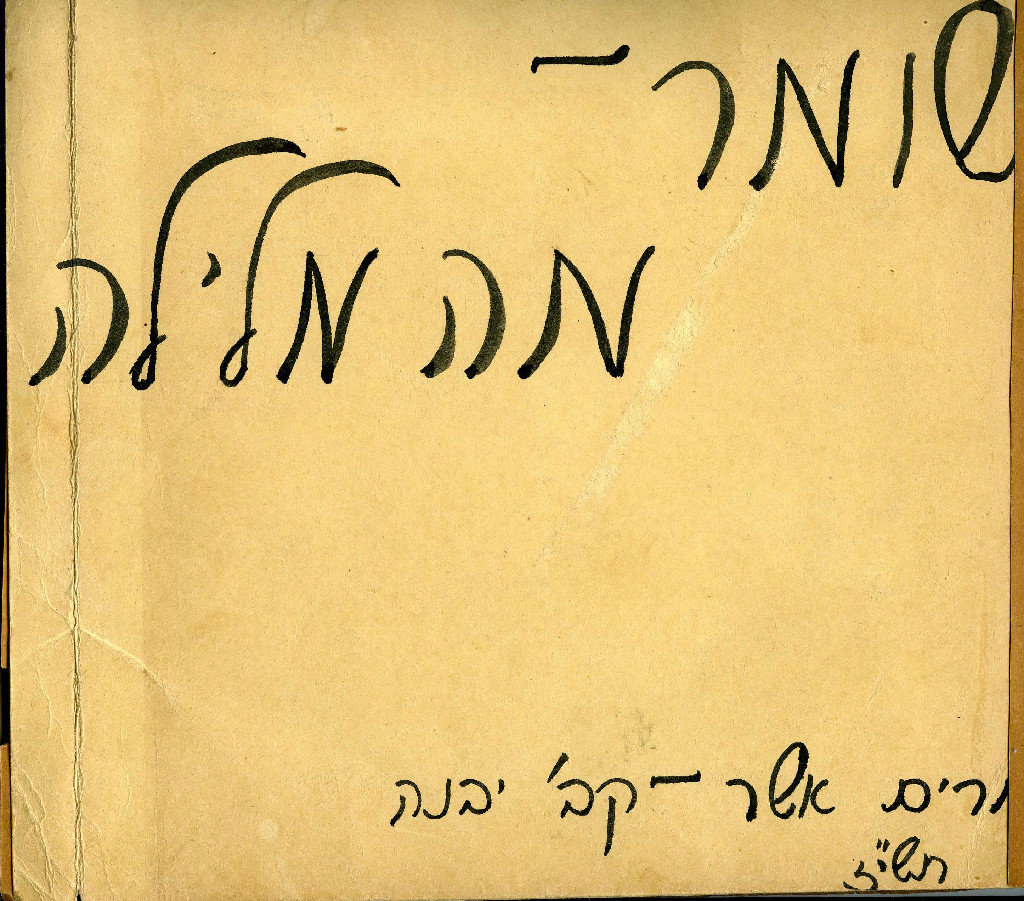 שומר –
מה מלילה
מרים אשר – קב' יבנה
תשי"ז